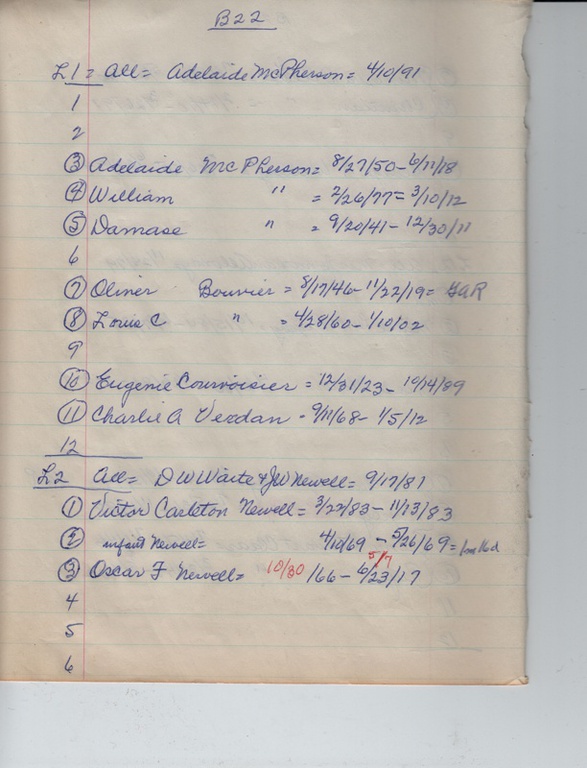 B22
L1 = All = Adelaide McPherson = 4/10/91
1
2
③ Adelaide McPherson = 8/27/50 - 6/11/18
④ William " = 2/26/77 = 3/10/12
⑤ Damase " = 9/20/41 - 12/30/11
6
⑦ Oliner Bouvier = 8/17/46 - 11/22/19 = GAR
⑧ Louis C " = 4/28/60 - 1/10/02
9
⑩ Eugenie Courvoisier = 12/31/23 - 10/14/89
⑪ Charlie A Verdan - 9/11/68 - 1/5/12
12
L2 All = D W Waite & JW Newell = 9/17/81
① Victor Carleton Newell = 3/22/83 - 11/13/83
② infant Newell = 4/10/69 - 5/26/69 =
5/7
③ Oscar F Newell = 10/30 /66 - 6/23/17
4
5
6